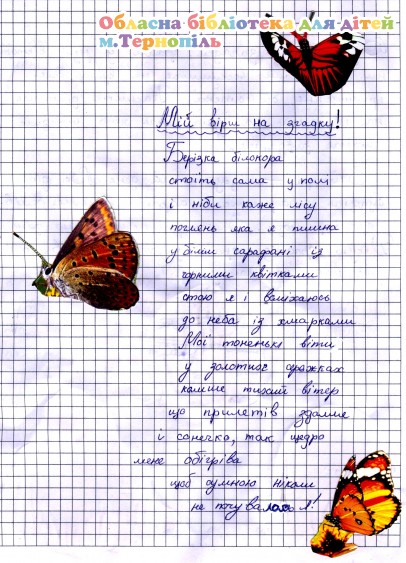 Обласна бібліотека для дітей
м.Тернопіль
Мій вірш на згадку!
Берізка білокора
стоїть сама у полі
і ніби каже лісу
поглянь яка я пишна
у білім сарафані із
чорними квітками
стою я і всміхаюсь
до неба із хмарками
Мої тоненькі віти
у золотих сражках
колише тихий вітер
що прилетів здалше
і сонечко, так щедро
мене обігріва
щоб сумною ніколи
не почувалась я!